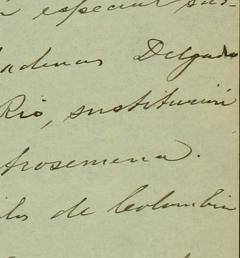 especial
adenas Delgado
Rio, sustitución
trosemena.
los de Colombia